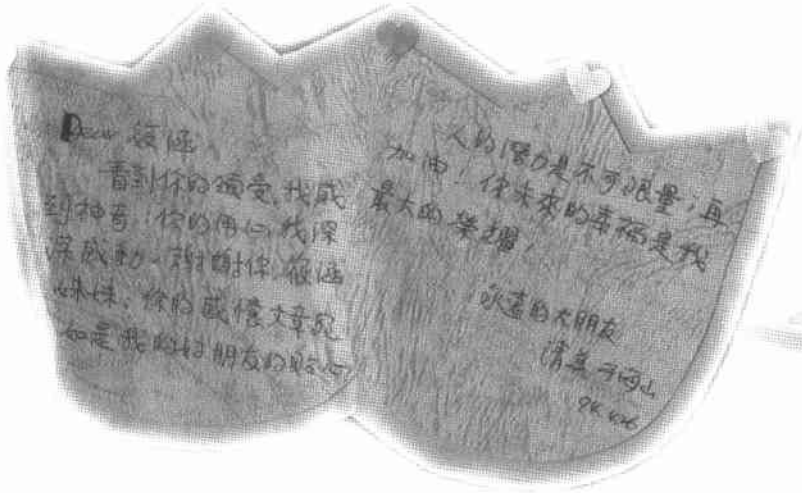 Dear 筱涵
看到你的領受,我感
到神奇!你的用心,我深
深感動。謝謝你 筱涵
妹妹,你的感懷文章宛
如是我的好朋友的貼心
人的潛力是不可限量,再
加油!你未來的幸福是我
最大的榮耀!
永遠的大朋友
清
94.